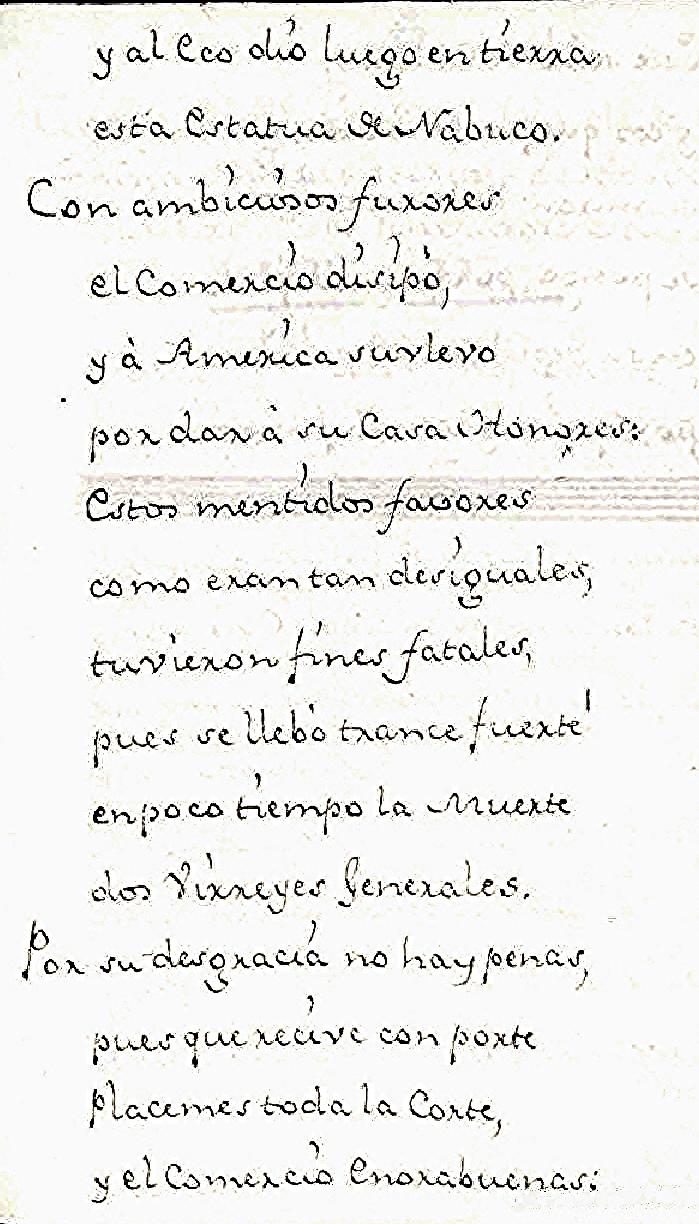 y al Eco dió luego en tierra
esta Estatua de Nabuco.
Con ambiciosos furores
el Comercio disipò,
y à America survlevo
por dar à su Casa Honores:
Estos mentidos favores
como eran tan desiguales,
tuvieron fines fatales,
pues se llebò trance fuerte
en poco tiempo la Muerte
dos Virreyes Generales.
Por su desgracia no hay penas,
pues que recive con porte
Placemes toda la Corte,
y el Comercio Enorabuenas: